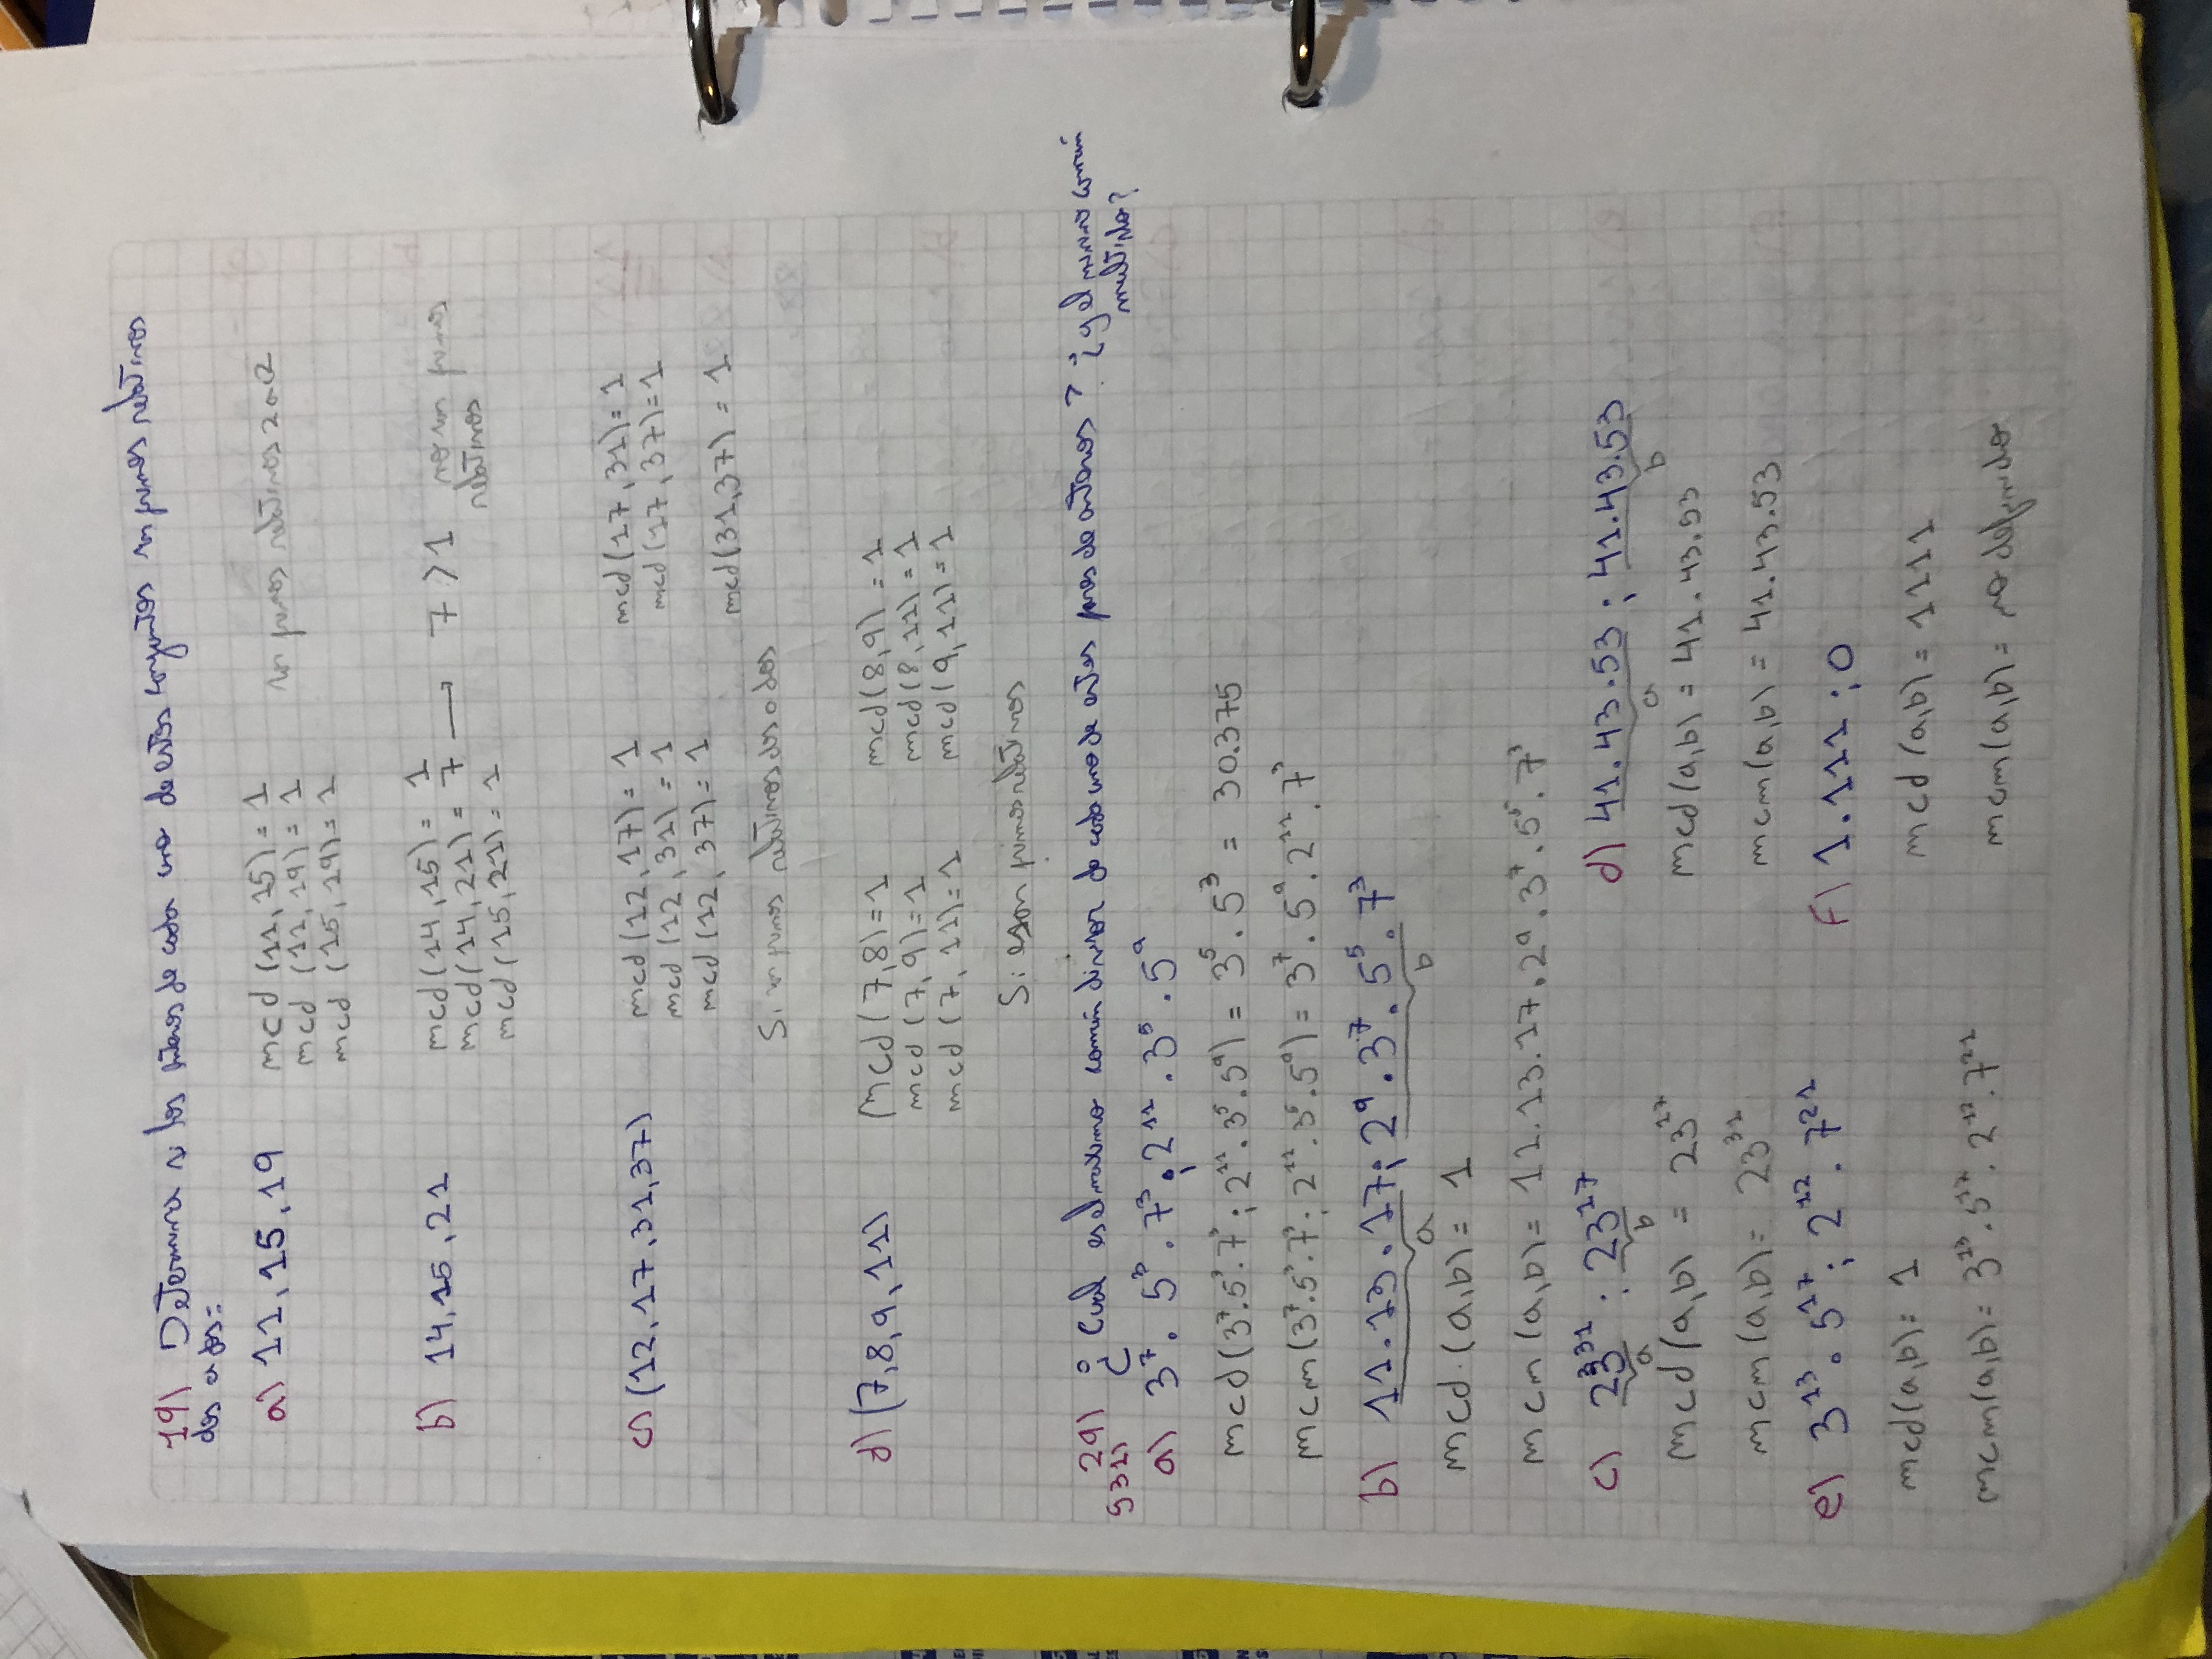 19) Determina si los enteros de cada uno de estos conjuntos son primos relativos
dos a dos:
a) 11, 15, 19 mcd (11, 15) = 1 son primos relativos 2 a 2
mcd (11, 19) = 1
mcd (15, 19) = 1
b) 14, 15, 21 mcd (14, 15) = 1
mcd (14, 21) = 7 → 7 > 1 no son primos
relativos
mcd (15, 21) = 1
c) (12, 17, 31, 37) mcd (12, 17) = 1 mcd (17, 31) = 1
mcd (12, 31) = 1 mcd (17, 37) = 1
mcd (12, 37) = 1
mcd (31, 37) = 1
Si son primos relativos dos a dos
d) (7, 8, 9, 11) mcd (7, 8) = 1 mcd (8, 9) = 1
mcd (7, 9) = 1 mcd (8, 11) = 1
mcd (7, 11) = 1 mcd (9, 11) = 1
Si son primos relativos
29) ¿Cual es el maximo común divisor de cada uno de estos pares de enteros? ¿y el minimo común
y 31) multiplo?
a) 3⁷ . 5³ . 7³ ; 2¹¹ . 3⁵ . 5⁹
mcd (3⁷.5³.7³ ; 2¹¹.3⁵.5⁹) = 3⁵ . 5³ = 30.375
mcm (3⁷.5³.7³ ; 2¹¹.3⁵.5⁹) = 3⁷ . 5⁹ . 2¹¹ . 7³
b) 11 . 13 . 17 ; 2⁹ . 3⁷ . 5⁵ . 7³
a b
mcd (a,b) = 1
mcm (a,b) = 11.13.17.2⁹.3⁷.5⁵.7³
c) 23³¹ ; 23¹⁷ d) 41.43.53 ; 41.43.53
a b a b
mcd (a,b) = 23¹⁷ mcd (a,b) = 41.43.53
mcm (a,b) = 23³¹ mcm (a,b) = 41.43.53
e) 3¹³ . 5¹⁷ ; 2¹² . 7²¹ F) 1.111 ; 0
mcd (a,b) = 1 mcd (a,b) = 1111
mcm (a,b) = 3¹³.5¹⁷.2¹².7²¹ mcm (a,b) = no definido